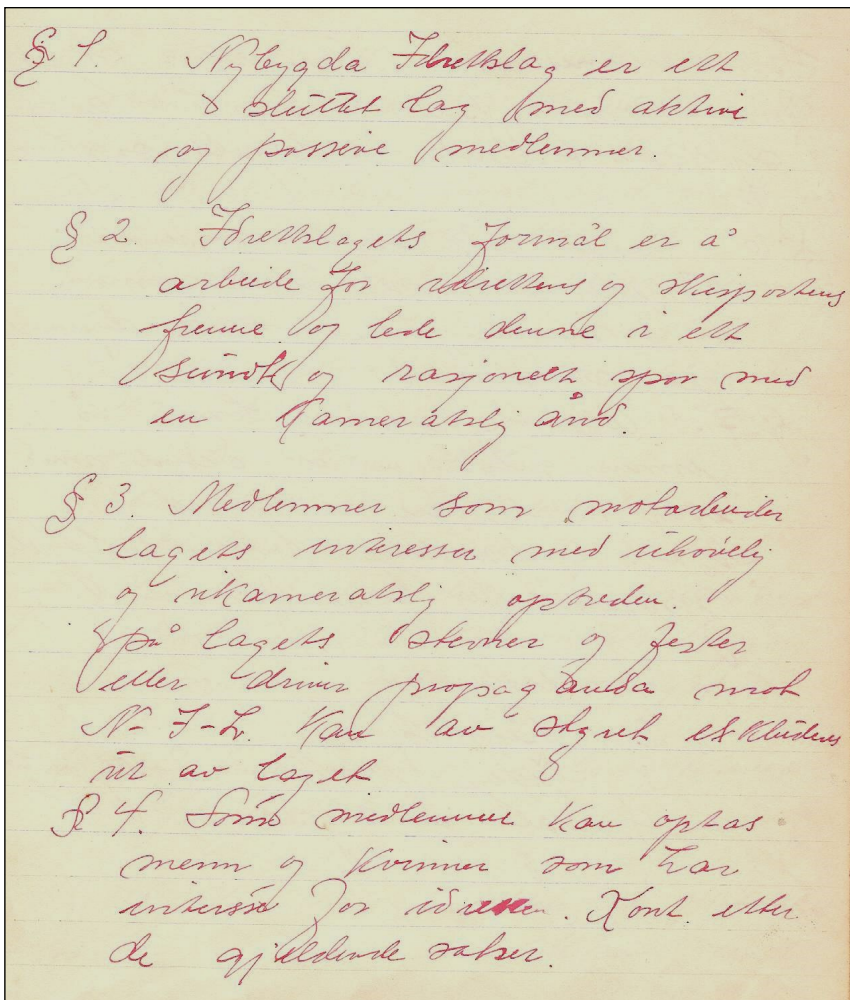 § 1. Nybygda Idrettslag er ett
sluttet lag med aktive
og passive medlemmer.
§ 2. Idrettslagets formål er å
arbeide for idrettens og skisportens
fremme og lede denne i ett
sundt og rasjonelt spor med
en kameratslig ånd.
§ 3. Medlemmer som motarbeider
lagets interesser med uhøvelig
og ukameratslig optreden.
på lagets stevner og fester
eller driver propaganda mot
N-I-L. kan av styret ekskluderes
ut av laget
§ 4. Som medlemmer kan optas
menn og kvinner som har
interesse for idretten. Kont. etter
de gjeldende satser.